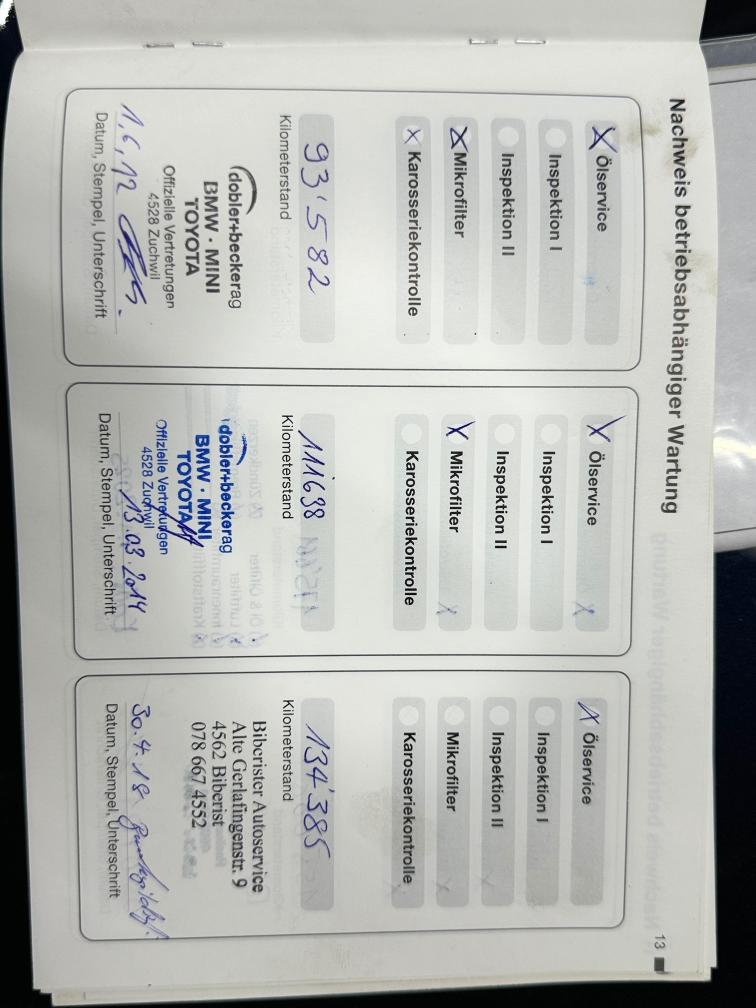 Nachweis betriebsabhängiger Wartung
X Ölservice
Inspektion I
Inspektion II
X Mikrofilter
X Karosseriekontrolle
93'582
Kilometerstand
dobler+beckerag
BMW · MINI
TOYOTA
Offizielle Vertretungen
4528 Zuchwil
1.6.12
Datum, Stempel, Unterschrift
X Ölservice
Inspektion I
Inspektion II
X Mikrofilter
Karosseriekontrolle
111698
Kilometerstand
dobler+beckerag
BMW · MINI
TOYOTA
Offizielle Vertretungen
4528 Zuchwil
13.03.2014
Datum, Stempel, Unterschrift
X Ölservice
Inspektion I
Inspektion II
Mikrofilter
Karosseriekontrolle
134'385
Kilometerstand
Biberister Autoservice
Alte Gerlafingenstr. 9
4562 Biberist
078 667 4552
30.4.18
Datum, Stempel, Unterschrift
13